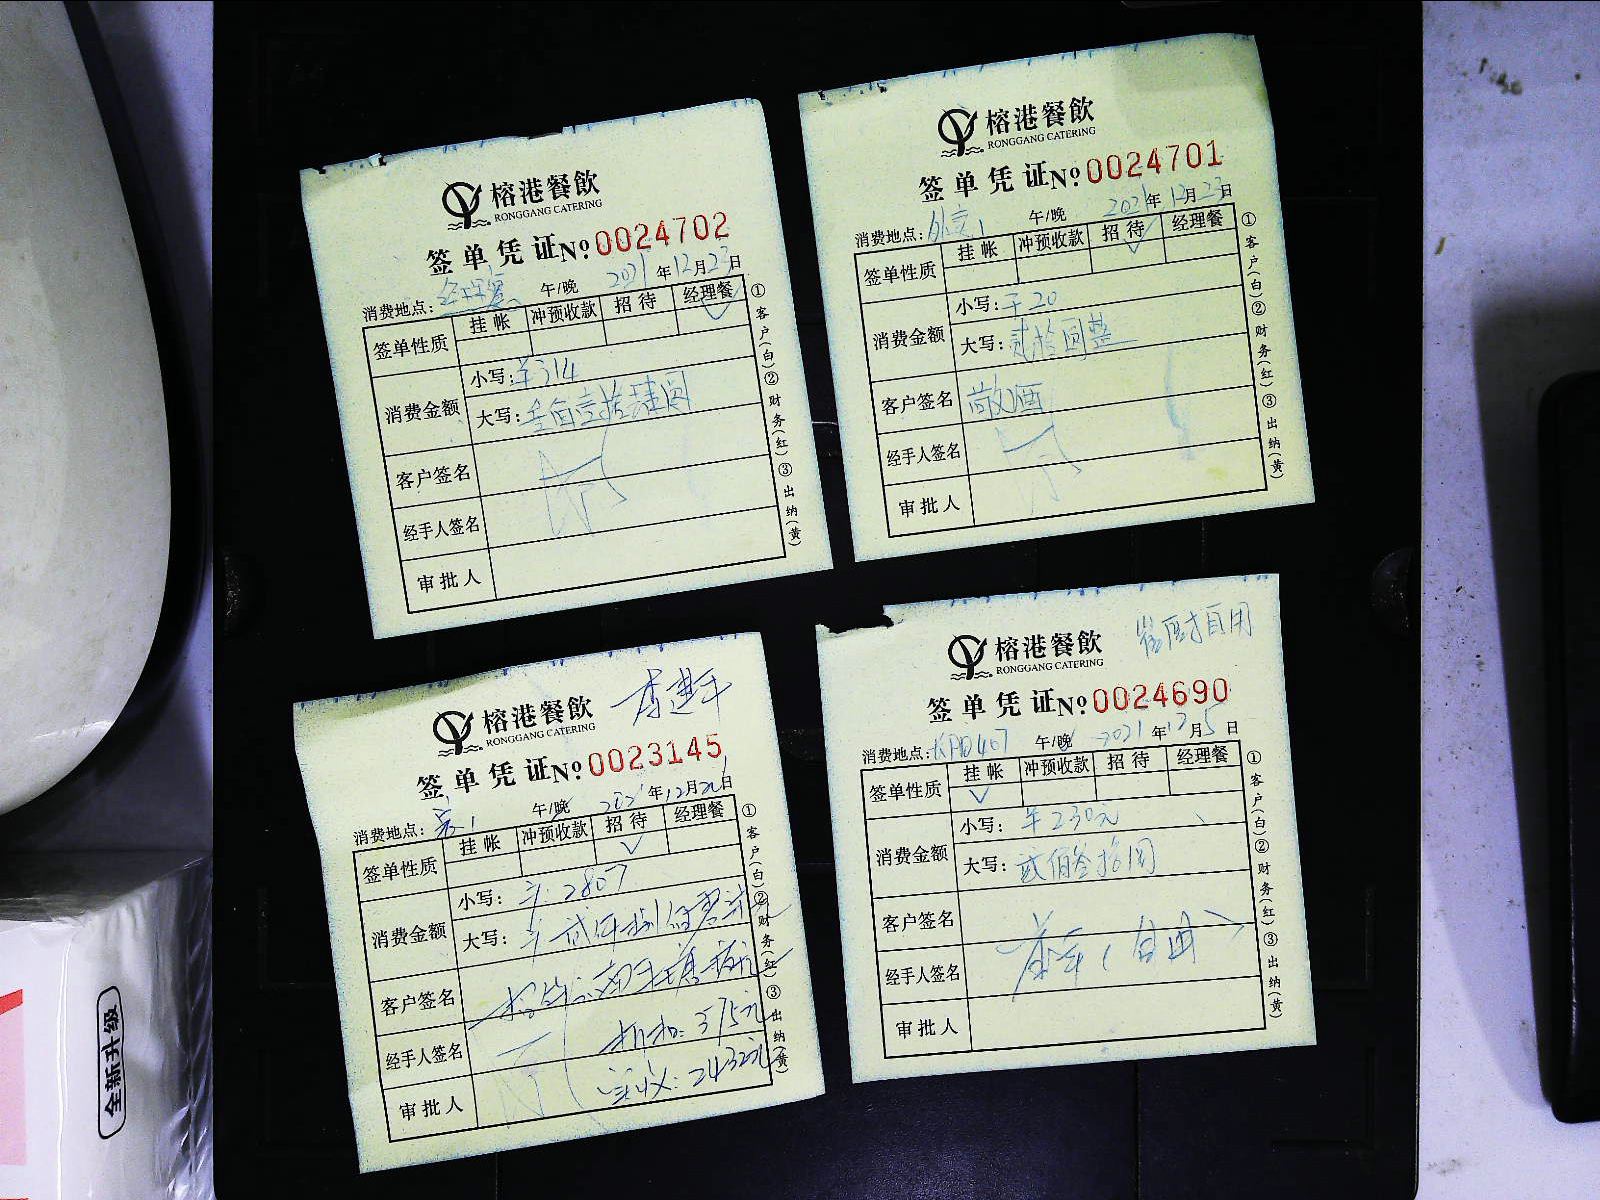 榕港餐飲
RONGGANG CATERING
签单凭证 №0024702
消费地点: 午/晚 2021年12月23日
签单性质 挂帐 冲预收款 招待 经理餐
消费金额
小写:¥314
大写:叁佰壹拾肆圆
客户签名
经手人签名
审批人
①客户(白)②财务(红)③出纳(黄)
榕港餐飲
RONGGANG CATERING
签单凭证 №0024701
消费地点: 午/晚 2021年12月23日
签单性质 挂帐 冲预收款 招待 经理餐
消费金额
小写:¥20
大写:贰拾圆整
客户签名 敬酒
经手人签名
审批人
①客户(白)②财务(红)③出纳(黄)
榕港餐飲
RONGGANG CATERING
签单凭证 №0023145
消费地点: 午/晚 2021年12月 日
签单性质 挂帐 冲预收款 招待 经理餐
消费金额
小写:¥:2807
大写:
客户签名
经手人签名 375元
审批人 实收:2432元
①客户(白)②财务(红)③出纳(黄)
榕港餐飲
RONGGANG CATERING
签单凭证 №0024690
消费地点: 午/晚 2021年12月5日
签单性质 挂帐 冲预收款 招待 经理餐
消费金额
小写:¥230元
大写:贰佰叁拾圆
客户签名
经手人签名
审批人
①客户(白)②财务(红)③出纳(黄)
全新升级